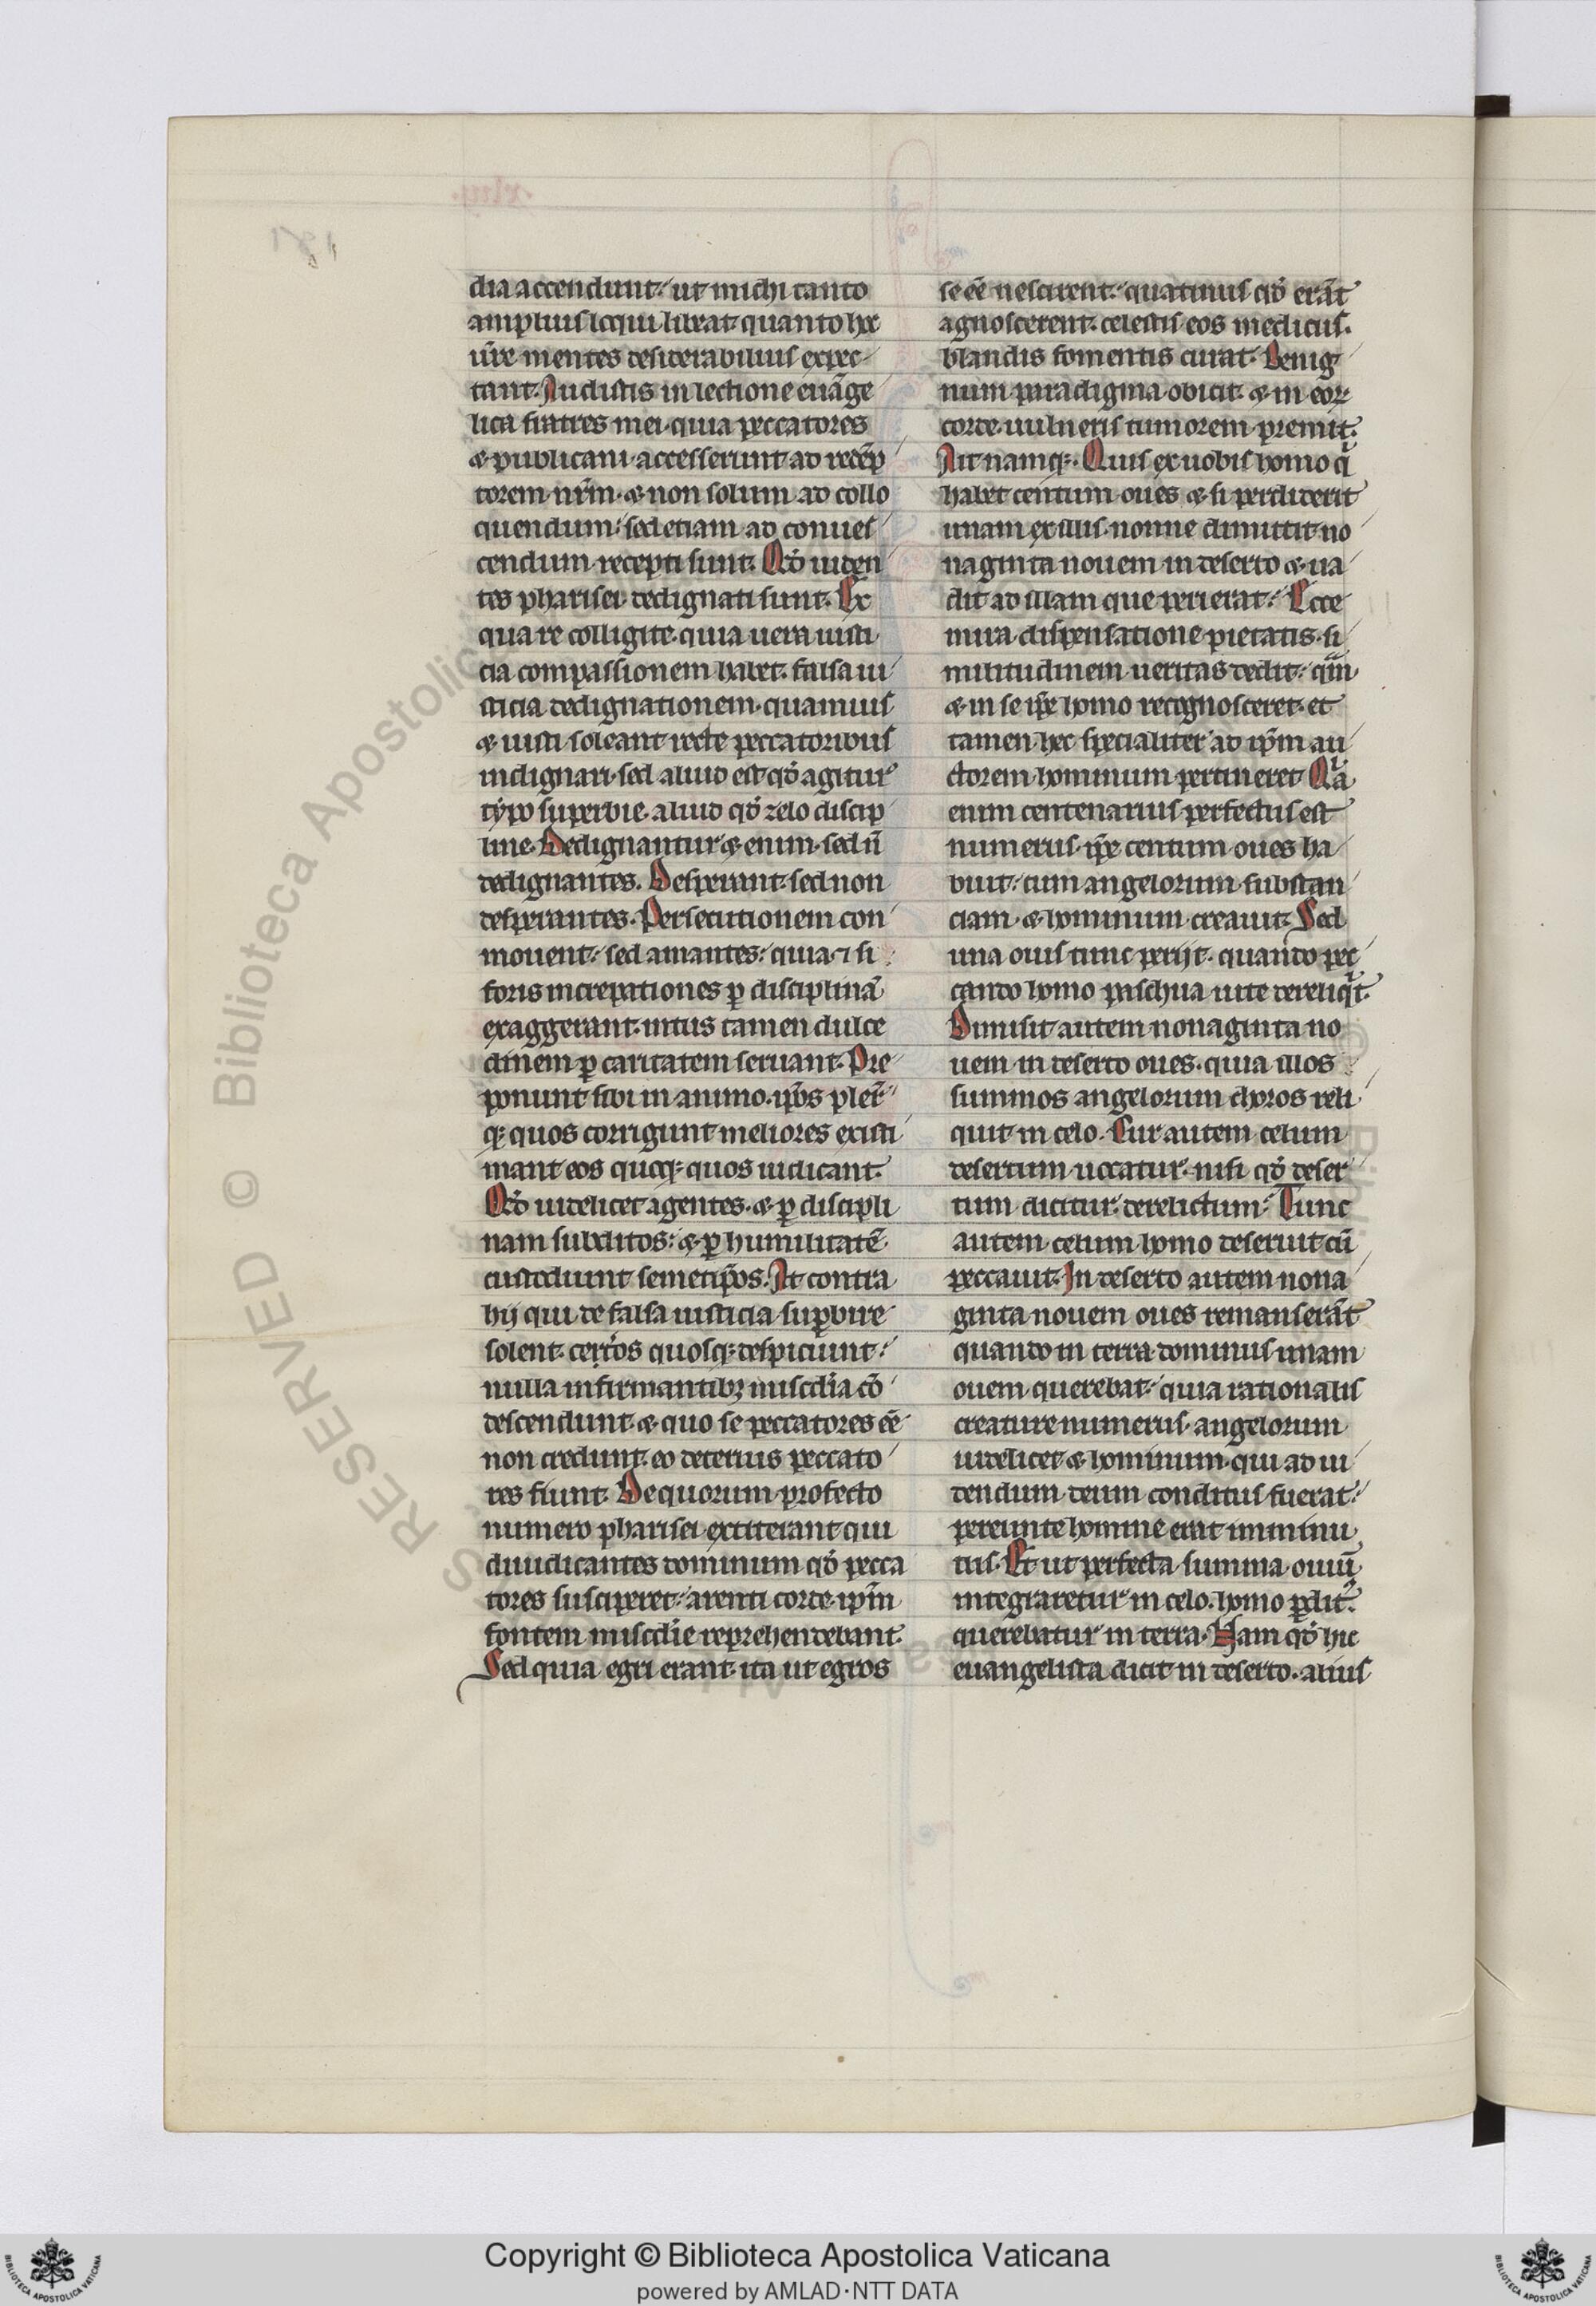 dia accendunt. ut michi tanto
amplius loqui libeat quanto hoc
ur̄e mentes desiderabilius expec-
tant. Audistis in lectione euāge
lica fratres mei. quia peccatores
& publicani accesserunt ad redēp
torem nr̄m. & non solum ad collo
quendum. sed etiam ad conues
cendum recepti sunt. Qd̄ uiden
tes pharisei dedignati sunt. Ex
qua re colligite. quia uera iusti
cia compassionem habet. falsa iu
sticia dedignationem. quamuis
& iusti soleant recte peccatoribus
indignari. sed aliud est qd̄ agitur
typo superbie. aliud qd̄ zelo discip
line. Dedignantur & enim. sed n̄
dedignantes. Desperant. sed non
desperantes. Persecutionem con
mouent. sed amantes. quia ⁊ si
foris increpationes ꝑ disciplinā
exaggerant. intus tamen dulce
dinem ꝑ caritatem seruant. Pre
ponunt sibi in animo. ip̄os pler̄
q; quos corrigunt meliores existi
mant eos quoq; quos iudicant.
Qd̄ uidelicet agentes. & ꝑ discipli
nam subditos. & ꝑ humilitatē
custodiunt semetip̄os. At contra
hij qui de falsa iusticia suꝑbire
solent. cet̄os quosq; despiciunt.
nulla infirmantibꝫ miscd̄ia cō
descendunt. & quo se peccatores eē
non credunt. eo deterius peccato
res fiunt. De quorum profecto
numero pharisei extiterant qui
diiudicantes dominum qd̄ pecca
tores susciperet. arenti corde ip̄m
fontem miscd̄ie reprehendebant.
Sed quia egri erant. ita ut egros
se eē nescirent. quatinus qd̄ erāt
agnoscerent. celestis eos medicus.
blandis fomentis curat. Benig
num paradigma obicit. & in eoꝝ
corde. uulneris tumorem premit.
Ait namq;. Quis ex uobis homo q̄
habet centum oues & si perdiderit
unam ex illis. nonne dimittit no
naginta nouem in deserto & ua
dit ad illam que perierat. Ecce
mira dispensatione pietatis. si
militudinem ueritas dedit. qm̄
& in se ip̄e homo recognosceret. et
tamen hec specialiter ad ip̄m au
ctorem hominum pertineret. Q̄a
enim centenarius perfectus est
numerus. ip̄e centum oues ha
buit. cum angelorum substan
ciam & hominum creauit. Sed
una ouis tunc perijt. quando pec
cando homo paschua uite dereliq̄t.
Dimisit autem nonaginta no
uem in deserto oues. quia illos
summos angelorum choros reli
quit in celo. Cur autem celum
desertum uocatur. nisi qd̄ deser
tum dicitur derelictum. Tunc
autem celum homo deseruit cū
peccauit. In deserto autem nona
ginta nouem oues remanserāt
quando in terra dominus unam
ouem querebat. quia rationalis
creature numerus. angelorum
uidelicet & hominum. qui ad ui
dendum deum conditus fuerat.
pereunte homine erat imminu
tus. Et ut perfecta summa ouiū
integraretur in celo. homo ꝑdit̄.
querebatur in terra. Nam qd̄ hic
euangelista dicit in deserto. alius
© Biblioteca Apostolica
RESERVED
Copyright © Biblioteca Apostolica Vaticana
powered by AMLAD·NTT DATA